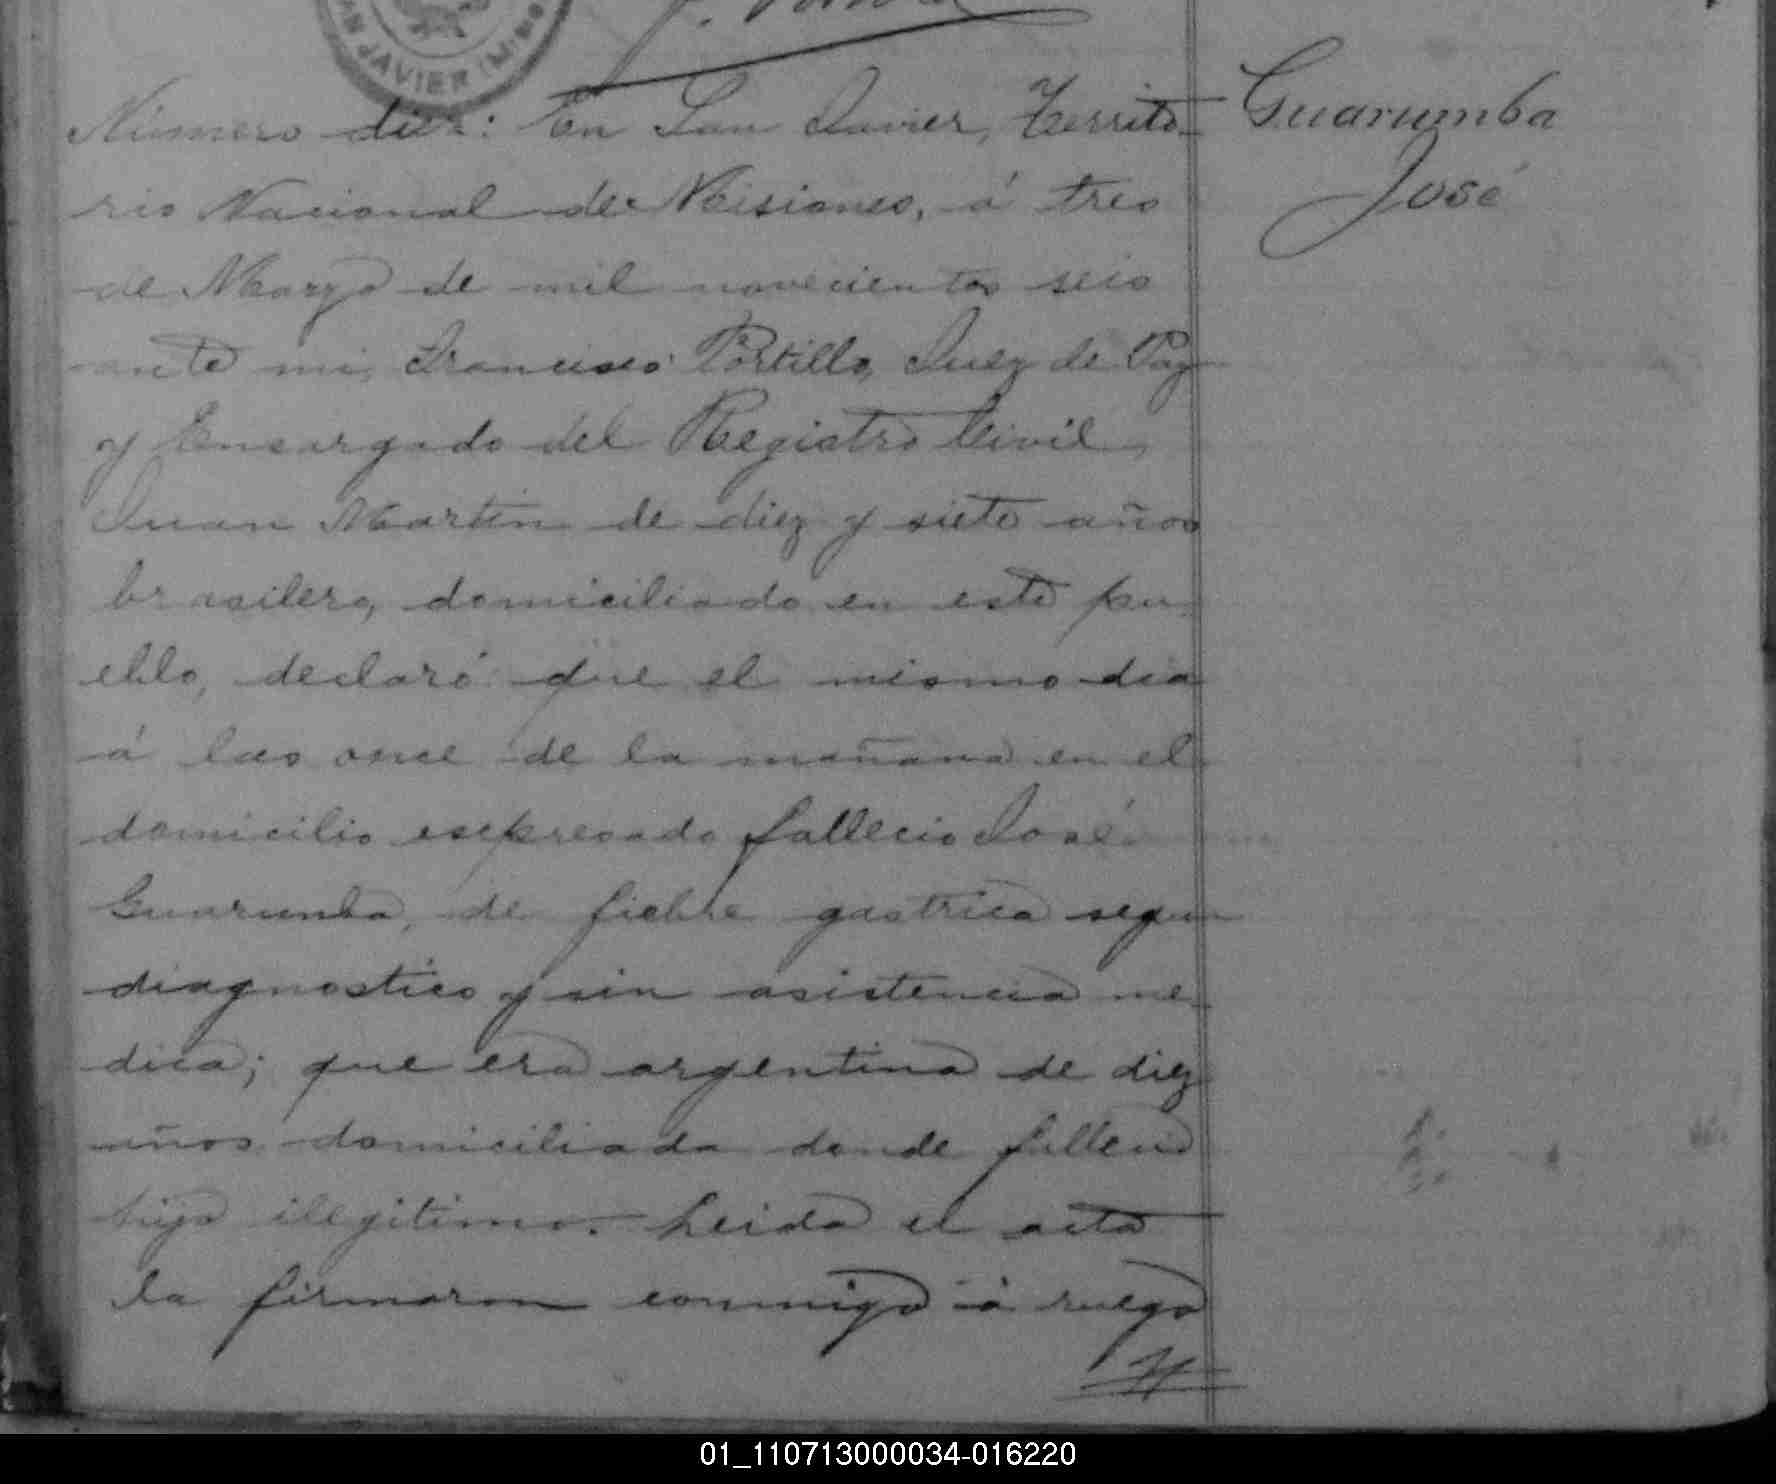 SAN JAVIER (MIS
Número diez: En San Javier, Territo-
rio Nacional de Misiones, á tres
de Marzo de mil novecientos seis
ante mi, Francisco Portillo, Juez de Paz
y Encargado del Registro Civil,
Juan Martin de diez y siete años
brasilero, domiciliado en este pu
eblo, declaró que el mismo dia
á las once de la mañana en el
domicilio esepresado fallecio José
Guarumba, de fiebre gastrica segun
diagnostico y sin asistencia me-
dica; que era argentina de diez
años domiciliada donde falleció
hijo ilegitimo. Leida el acta
la firmaron conmigo á ruego
Guarumba
José
01_110713000034-016220